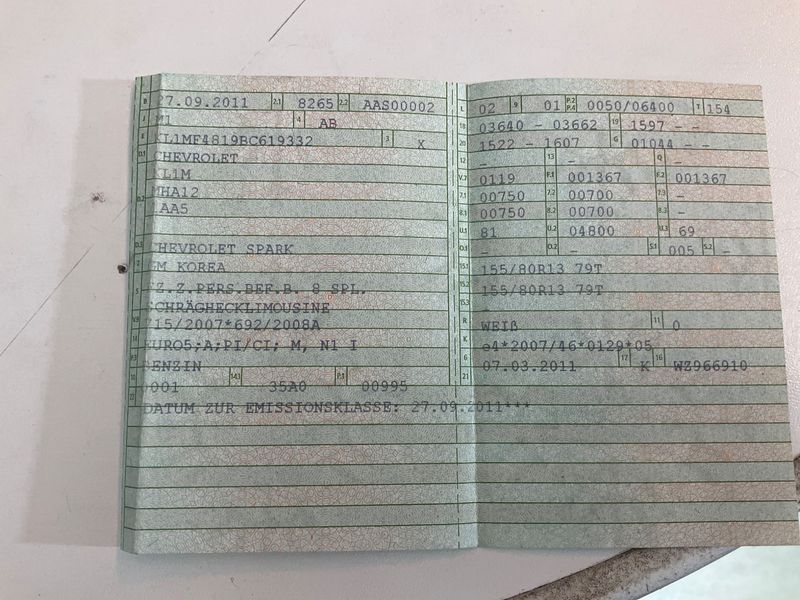 B 27.09.2011 2.1 8265 2.2 AAS00002
J M1 4 AB
E KL1MF4819BC619332 3 X
D.1 CHEVROLET
KL1M
D.2 MHA12
AA5
D.3 CHEVROLET SPARK
2 GM KOREA
5 FZ.Z.PERS.BEF.B. 8 SPL.
SCHRÄGHECKLIMOUSINE
V.9 715/2007*692/2008A
14 EURO5;A;PI/CI; M, N1 I
P.3 BENZIN
10 0001 14.1 35A0 P.1 00995
22 DATUM ZUR EMISSIONSKLASSE: 27.09.2011***
L 02 9 01 P.2 P.4 0050/06400 T 154
18 03640 - 03662 19 1597 - -
20 1522 - 1607 G 01044 - -
12 - 13 - Q -
V.7 0119 F.1 001367 F.2 001367
7.1 00750 7.2 00700 7.3 -
8.1 00750 8.2 00700 8.3 -
U.1 81 U.2 04800 U.3 69
O.1 - O.2 - S.1 005 S.2 -
15.1 155/80R13 79T
15.2 155/80R13 79T
15.3
R WEIß 11 0
K e4*2007/46*0129*05
6 07.03.2011 17 K 16 WZ966910
21